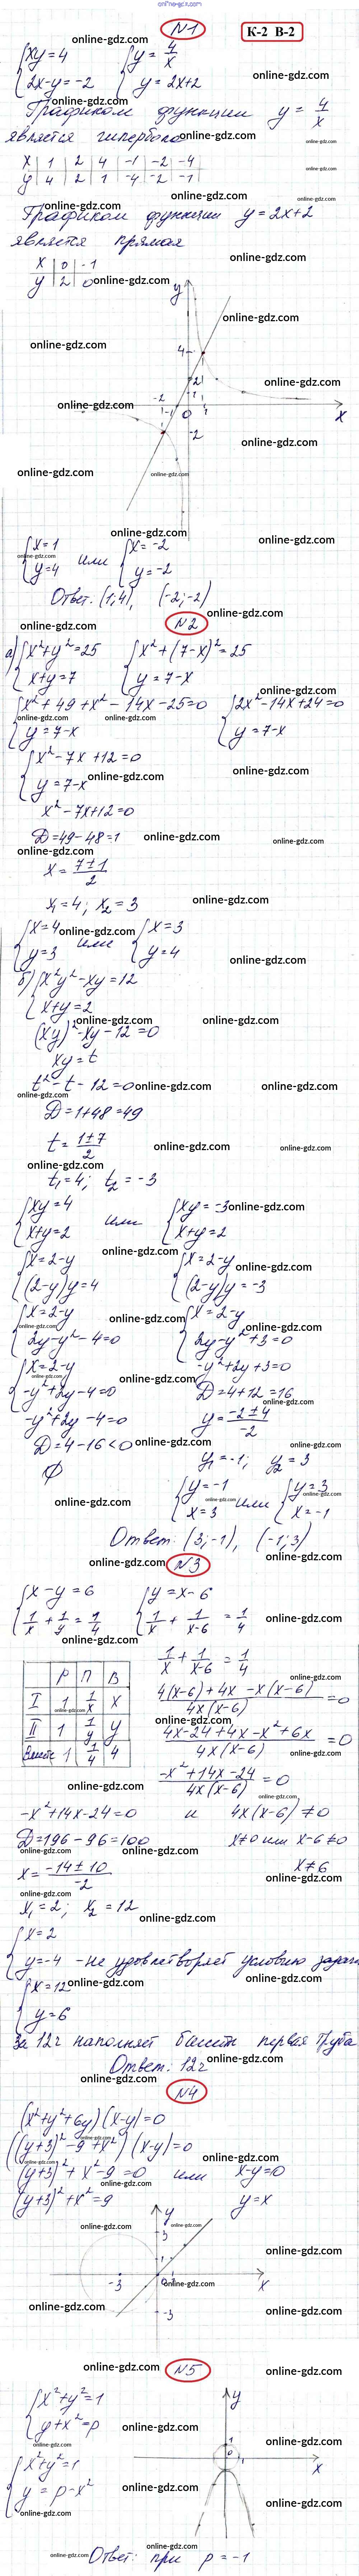 online-gdz.com
N1
К-2 В-2
{xy = 4 {y = 4/x
{2x-y = -2 { y = 2x+2
Графиком функции y = 4/x
является гипербола
x | 1 | 2 | 4 | -1 | -2 | -4
y | 4 | 2 | 1 | -4 | -2 | -1
Графиком функции y = 2x+2
является прямая
x | 0 | -1
y | 2 | 0
{x = 1 или {x = -2
{y = 4 {y = -2
Ответ. (1; 4), (-2; -2)
N2
а) {x²+y² = 25 {x²+(7-x)² = 25
{x+y = 7 {y = 7-x
{x²+49+x²-14x-25=0 {2x²-14x+24=0
{y = 7-x {y = 7-x
{x²-7x+12=0
{y = 7-x
x²-7x+12=0
D=49-48=1
x = (7±1)/2
x₁=4; x₂=3
{x=4 или {x=3
{y=3 {y=4
б) {x²y²-xy=12
{x+y=2
(xy)²-xy-12=0
xy = t
t²-t-12=0
D=1+48=49
t = (1±7)/2
t₁=4; t₂=-3
{xy=4 или {xy=-3
{x+y=2 {x+y=2
{x=2-y {x=2-y
{(2-y)y=4 {(2-y)y=-3
{x=2-y {x=2-y
{2y-y²-4=0 {2y-y²+3=0
{x=2-y -y²+2y+3=0
{-y²+2y-4=0 D=4+12=16
-y²+2y-4=0 y = (-2±4)/-2
D=4-16<0 y₁=-1; y₂=3
∅ {y=-1 или {y=3
{x=3 {x=-1
Ответ: (3;-1), (-1;3)
N3
{x-y=6 {y=x-6
{1/x+1/y=1/4 {1/x+1/(x-6)=1/4
| Р | П | В
I | 1 | 1/x | x
II | 1 | 1/y | y
Вместе | 1 | 1/4 | 4
1/x + 1/(x-6) = 1/4
(4(x-6)+4x-x(x-6))/(4x(x-6)) = 0
(4x-24+4x-x²+6x)/(4x(x-6)) = 0
(-x²+14x-24)/(4x(x-6)) = 0
-x²+14x-24=0 и 4x(x-6)≠0
D=196-96=100 x≠0 или x-6≠0
x = (-14±10)/-2 x≠6
x₁=2; x₂=12
{x=2
{y=-4 - не удовлетворяет условию задачи
{x=12
{y=6
За 12ч наполняет бассейн первая труба
Ответ: 12ч
N4
(x²+y²+6y)(x-y)=0
((y+3)²-9+x²)(x-y)=0
(y+3)²+x²-9=0 или x-y=0
(y+3)²+x²=9 y=x
N5
{x²+y²=1
{y+x²=p
{x²+y²=1
{y=p-x²
Ответ: при p=-1